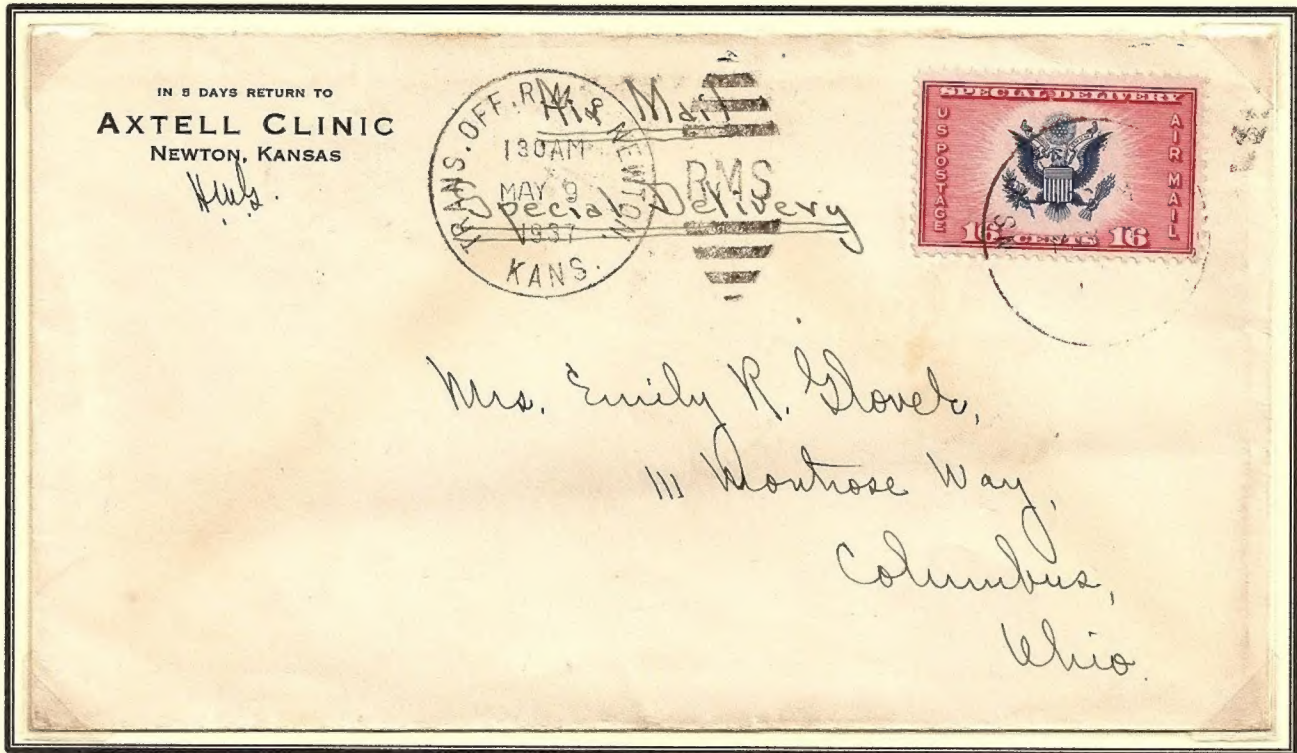 IN 5 DAYS RETURN TO
AXTELL CLINIC
NEWTON, KANSAS
TRANS. OFF. R.M.S. NEWTON, KANS.
130AM
MAY 9
1937
RMS
Air Mail
Special Delivery
SPECIAL DELIVERY
US POSTAGE
AIR MAIL
16 CENTS 16
Mrs. Emily R. Glover,
111 Montrose Way,
Columbus,
Ohio.